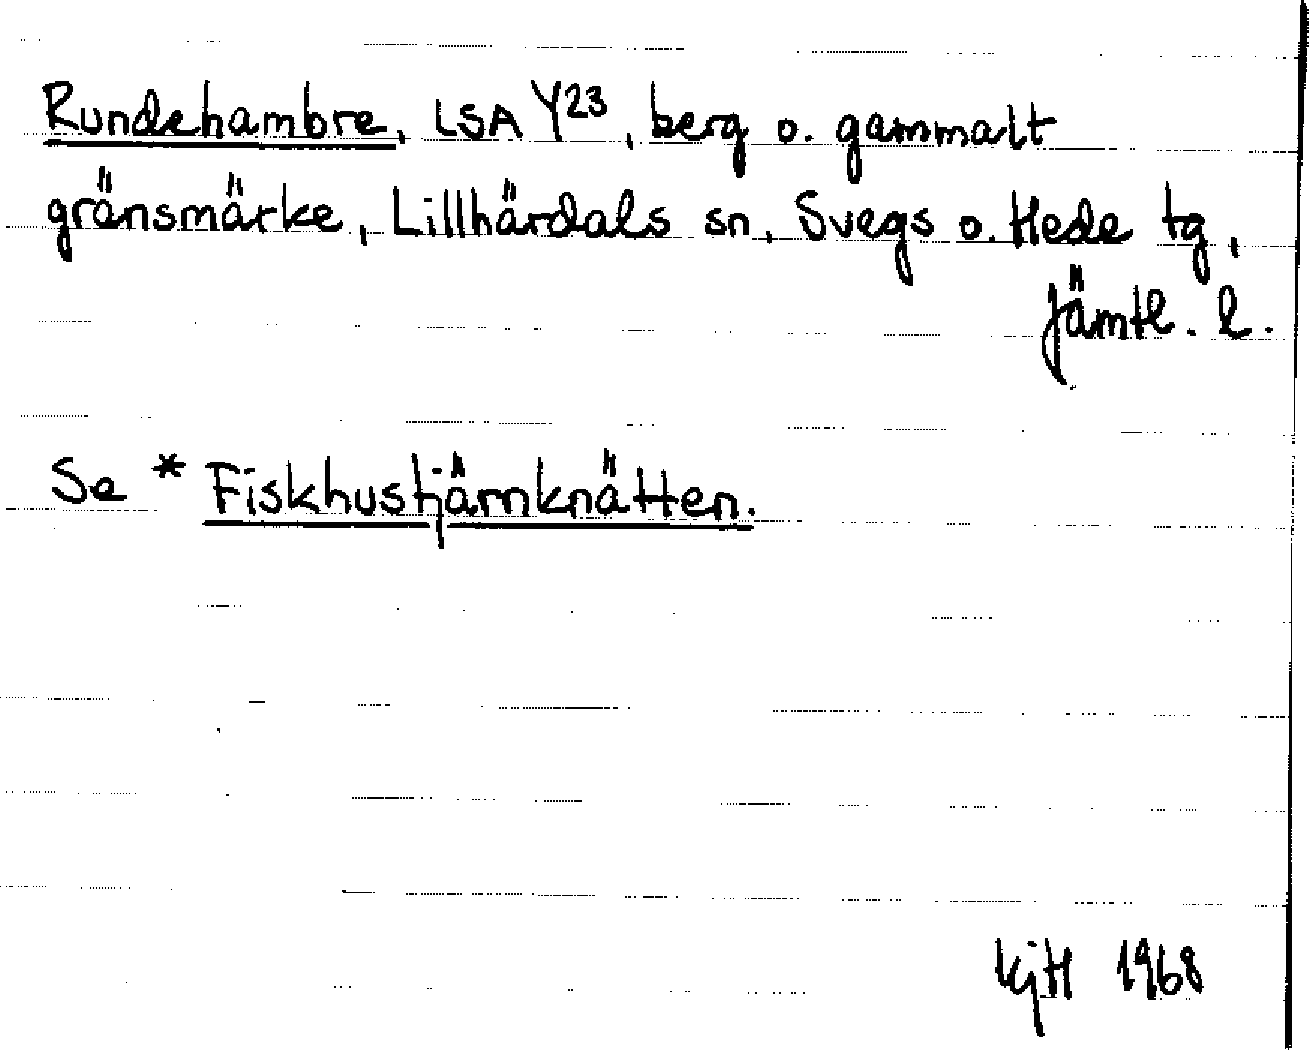 Rundehambre, LSA Y23, berg o. gammalt
gränsmärke, Lillhärdals sn, Svegs o. Hede tg,
Jämtl. l.
Se * Fiskhustjärnknätten.
KjH 1968